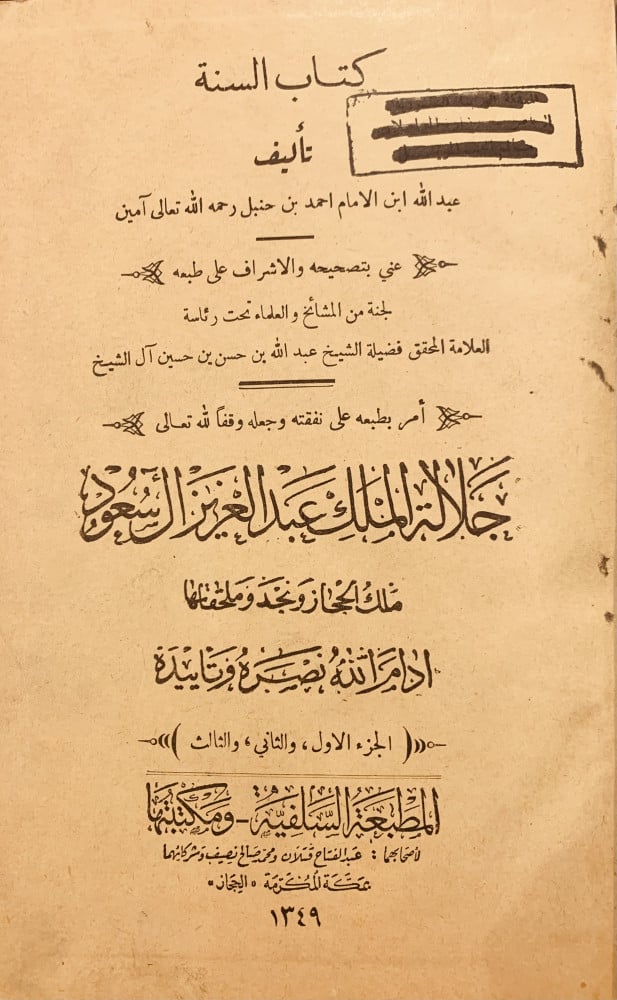 كتاب السنة
تأليف
عبد الله ابن الامام احمد بن حنبل رحمه الله تعالى آمين
عني بتصحيحه والاشراف على طبعه
لجنة من المشائخ والعلماء تحت رئاسة
العلامة المحقق فضيلة الشيخ عبد الله بن حسن بن حسين آل الشيخ
أمر بطبعه على نفقته وجعله وقفاً لله تعالى
جَلالة المَلِك عَبد العَزيز آل سُعُود
مَلك الحجَاز ونَجد ومَلحقاتها
ادامَ اللّٰهُ نَصْرَهُ وَتَاييدَهُ
الجزء الاول، والثاني، والثالث
المَطبَعَة السَّلفيَّة - وَمَكتبَتها
لأصحابها: عبد الفتاح قتلان ومحمد صالح نصيف وشركاؤهما
بمكة المُكرّمة «الحجاز»
١٣٤٩